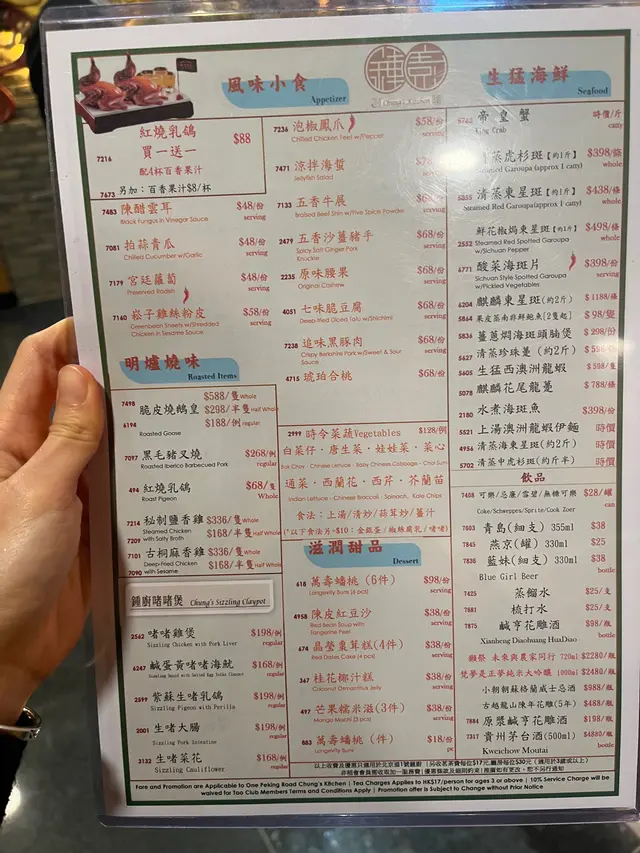 風味小食
Appetizer
鍾
Chung's Kitchen
生猛海鮮
Seafood
紅燒乳鴿
買一送一
$88
7216
配4杯百香果汁
7673 另加：百香果汁$8/杯
7483 陳醋雲耳 $48/份
Black Fungus in Vinegar Sauce serving
7081 拍蒜青瓜 $48/份
Chilled Cucumber w/Garlic serving
7179 宮廷蘿蔔 $48/份
Preserved Radish serving
7160 崧子雞絲粉皮 $58/份
Greenbean Sheets w/Shredded serving
Chicken in Sesame Sauce
明爐燒味
Roasted Items
7498 $588/隻Whole
脆皮燒鵝皇 $298/半隻Half Whole
6194 $188/例 regular
Roasted Goose
7097 黑毛豬叉燒 $268/例
Roasted Iberico Barbecued Pork regular
494 紅燒乳鴿 $68/隻
Roast Pigeon Whole
7214 秘制鹽香雞 $336/隻Whole
Steamed Chicken $168/半隻Half Whole
7209 with Salty Broth
7101 古桐麻香雞 $336/隻Whole
Deep-Fried Chicken $168/半隻Half Whole
7090 with Sesame
鍾廚啫啫煲 Chung's Sizzling Claypot
2562 啫啫雞煲 $198/例
Sizzling Chicken with Pork Liver regular
6247 鹹蛋黃啫啫海魷 $168/例
Sizzling Squid with Salted Egg Yolks Claypot regular
2599 紫蘇生啫乳鴿 $198/例
Sizzling Pigeon with Perilla regular
2001 生啫大腸 $198/例
Sizzling Pork Intestine regular
3132 生啫菜花 $168/例
Sizzling Cauliflower regular
7236 泡椒鳳爪 $58/份
Chilled Chicken Feet w/Pepper serving
7471 涼拌海蜇
Jellyfish Salad serving
7133 五香牛展 $68/份
Braised Beef Shin w/Five Spices Powder serving
2479 五香沙薑豬手 $68/份
Spicy Soft Ginger Pork serving
Knuckle
2235 原味腰果 $68/份
Original Cashew serving
4051 七味脆豆腐 $68/份
Deep-fried Diced Tofu w/Shichimi serving
7238 追味黑豚肉 $68/份
Crispy Berkshire Pork w/Sweet & Sour serving
Sauce
4715 琥珀合桃 $68/份
2999 時令菜蔬Vegetables $128/例
白菜仔・唐生菜・娃娃菜・菜心
Bok Choy・Chinese Lettuce・Baby Chinese Cabbage・Choi Sum
通菜・西蘭花・西芹・芥蘭苗
Indian Lettuce・Chinese Broccoli・Spinach・Kale Chips
食法：上湯/清炒/蒜茸炒/薑汁
(*以下食法另+$10：金銀蛋/椒絲腐乳/啫啫)
滋潤甜品
Dessert
618 萬壽蟠桃 (6件) $98/份
Longevity Buns (6 pcs) serving
4958 陳皮紅豆沙 $38/份
Red Bean Soup with serving
Tangerine Peel
674 晶瑩棗茸糕(4件) $38/份
Red Dates Cake (4 pcs) serving
367 桂花椰汁糕 $38/份
Coconut Osmanthus Jelly serving
497 芒果糯米滋(3件) $38/份
Mango Mochi (3 pcs) serving
683 萬壽蟠桃 (件) $18/份
Longevity Buns pc
帝皇蟹 時價/斤
King Crab catty
清蒸虎杉斑【約1斤】 $398/條
Garoupa (approx 1 catty) whole
5355 清蒸東星斑【約1斤】 $438/條
Steamed Red Garoupa(approx 1 catty) whole
鮮花椒焗東星斑【約1斤】 $498/條
2552 Steamed Red Spotted Garoupa whole
w/Sichuan Pepper
6771 酸菜海斑片 $398/份
Sichuan Style Spotted Garoupa serving
w/Pickled Vegetables
6204 麒麟東星斑(約2斤) $1188/條
5864 果皮蒸南非鮮鮑[2隻起] $98/隻
5836 薑蔥焗海斑頭腩煲 $298/份
5627 清蒸珍珠躉 (約2斤)
5605 生猛西澳洲龍蝦 $598/隻
5078 麒麟花尾龍躉 $788/條
2180 水煮海斑魚 $398/份
5521 上湯澳洲龍蝦伊麵 時價
4956 清蒸海東星斑(約2斤) 時價
5702 清蒸中虎杉斑(約斤半) 時價
飲品
7408 可樂/忌廉/雪碧/無糖可樂 $28/罐
Coke/Schweppes/Sprite/Cook Zoer can
7603 青島(細支) 355ml $38
7845 燕京(罐) 330ml $25
7838 藍妹(細支) 330ml $38
Blue Girl Beer bottle
7425 蒸餾水 $25/支
7681 梳打水 $28/支
7875 鹹亨花雕酒 $98/瓶
Xianheng Diaohuang HuaDiao bottle
獺祭 未來與農家同行 720ml $2280/瓶
雙夢是正夢純米大吟釀 1000ml $2480/瓶
小朝朝蘇格蘭威士忌酒 $988/瓶
古越龍山陳年花雕(5年) $488/瓶
7884 原漿鹹亨花雕酒 $198/瓶
7317 貴州茅台酒(500ml) $4880/瓶
Kweichow Moutai bottle
以上收費及優惠只適用於北京道1號鍾廚 | 另收茗茶費每位$17元,廳房每位$30元 (適用於3歲或以上)
非稻香會員需收取加一服務費 | 優惠條款及細則約束 | 推廣如有更改，恕不另行通知
Fare and Promotion are Applicable to One Peking Road Chung's Kitchen | Tea Charges Applies to HK$17/person for ages 3 or above | 10% Service Charge will be
waived for Tao Club Members Terms and Conditions Apply | Promotion offer is Subject to Change without Prior Notice